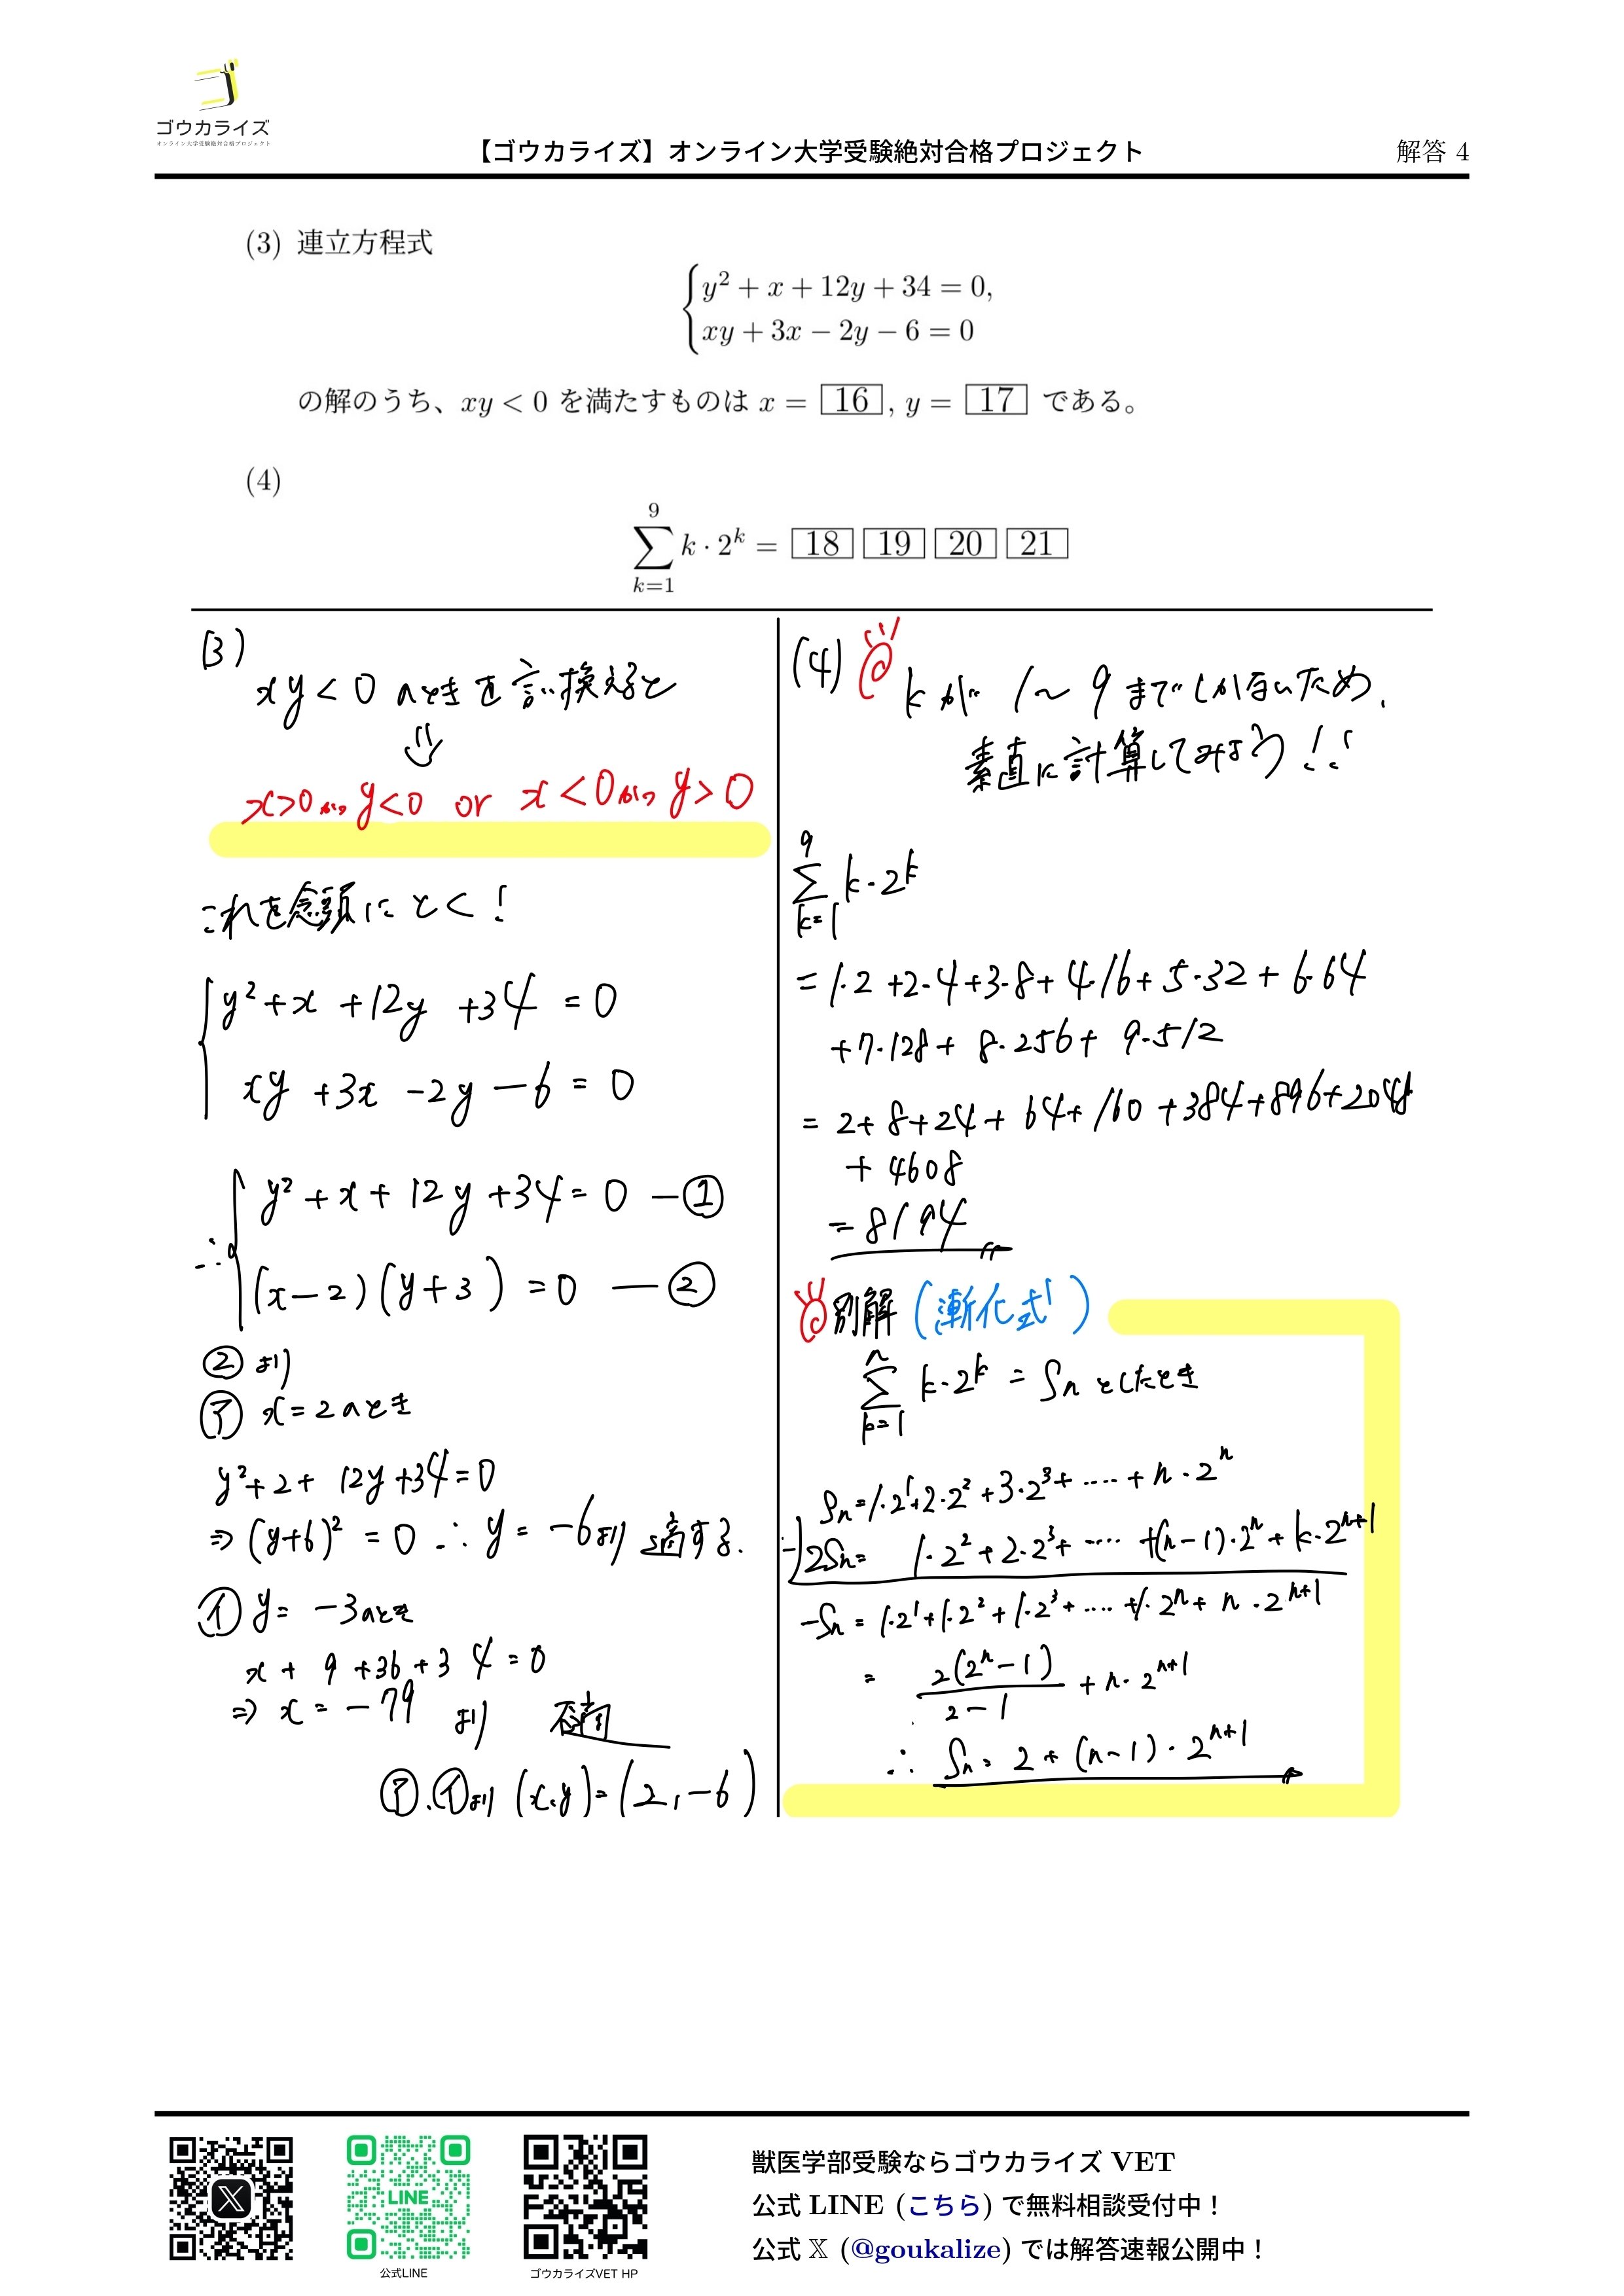 ゴウカライズ
オンライン大学受験絶対合格プロジェクト
【ゴウカライズ】オンライン大学受験絶対合格プロジェクト
解答 4
(3) 連立方程式
y² + x + 12y + 34 = 0,
xy + 3x − 2y − 6 = 0
の解のうち、xy < 0 を満たすものは x = 16, y = 17 である。
(4)
9
∑ k · 2^k = 18 19 20 21
k=1
(3)
xy < 0 のときを言い換えると
x>0かつy<0 or x<0かつy>0
これを念頭にとく!
y²+x+12y+34=0
xy+3x-2y-6=0
∴ y²+x+12y+34=0 —①
(x-2)(y+3)=0 —②
②より
㋐ x=2のとき
y²+2+12y+34=0
⇒ (y+6)²=0 ∴ y=-6より 適する.
㋑ y=-3のとき
x+9+36+34=0
⇒ x=-79 より 不適
㋐.㋑より (x,y)=(2,-6)
(4)
kが 1〜9までしかないため,
素直に計算してみよう!!
9
∑ k·2^k
k=1
=1·2+2·4+3·8+4·16+5·32+6·64
+7·128+8·256+9·512
=2+8+24+64+160+384+896+2048
+4608
=8194
別解(漸化式)
n
∑ k·2^k = Sn としたとき
k=1
Sn=1·2¹+2·2²+3·2³+····+n·2^n
-) 2Sn= 1·2²+2·2³+····+(n-1)·2^n+k·2^{n+1}
-Sn=1·2¹+1·2²+1·2³+····+1·2^n+n·2^{n+1}
= 2(2^n-1)/2-1 +n·2^{n+1}
∴ Sn=2+(n-1)·2^{n+1}
LINE
公式LINE
ゴウカライズVET HP
獣医学部受験ならゴウカライズ VET
公式 LINE (こちら) で無料相談受付中！
公式 𝕏 (@goukalize) では解答速報公開中！